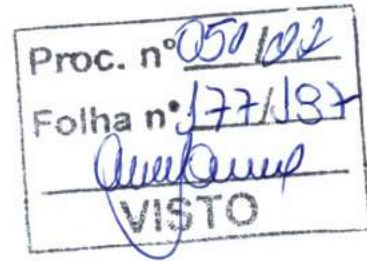 Proc. nº 050/02
Folha nº 177/197
VISTO